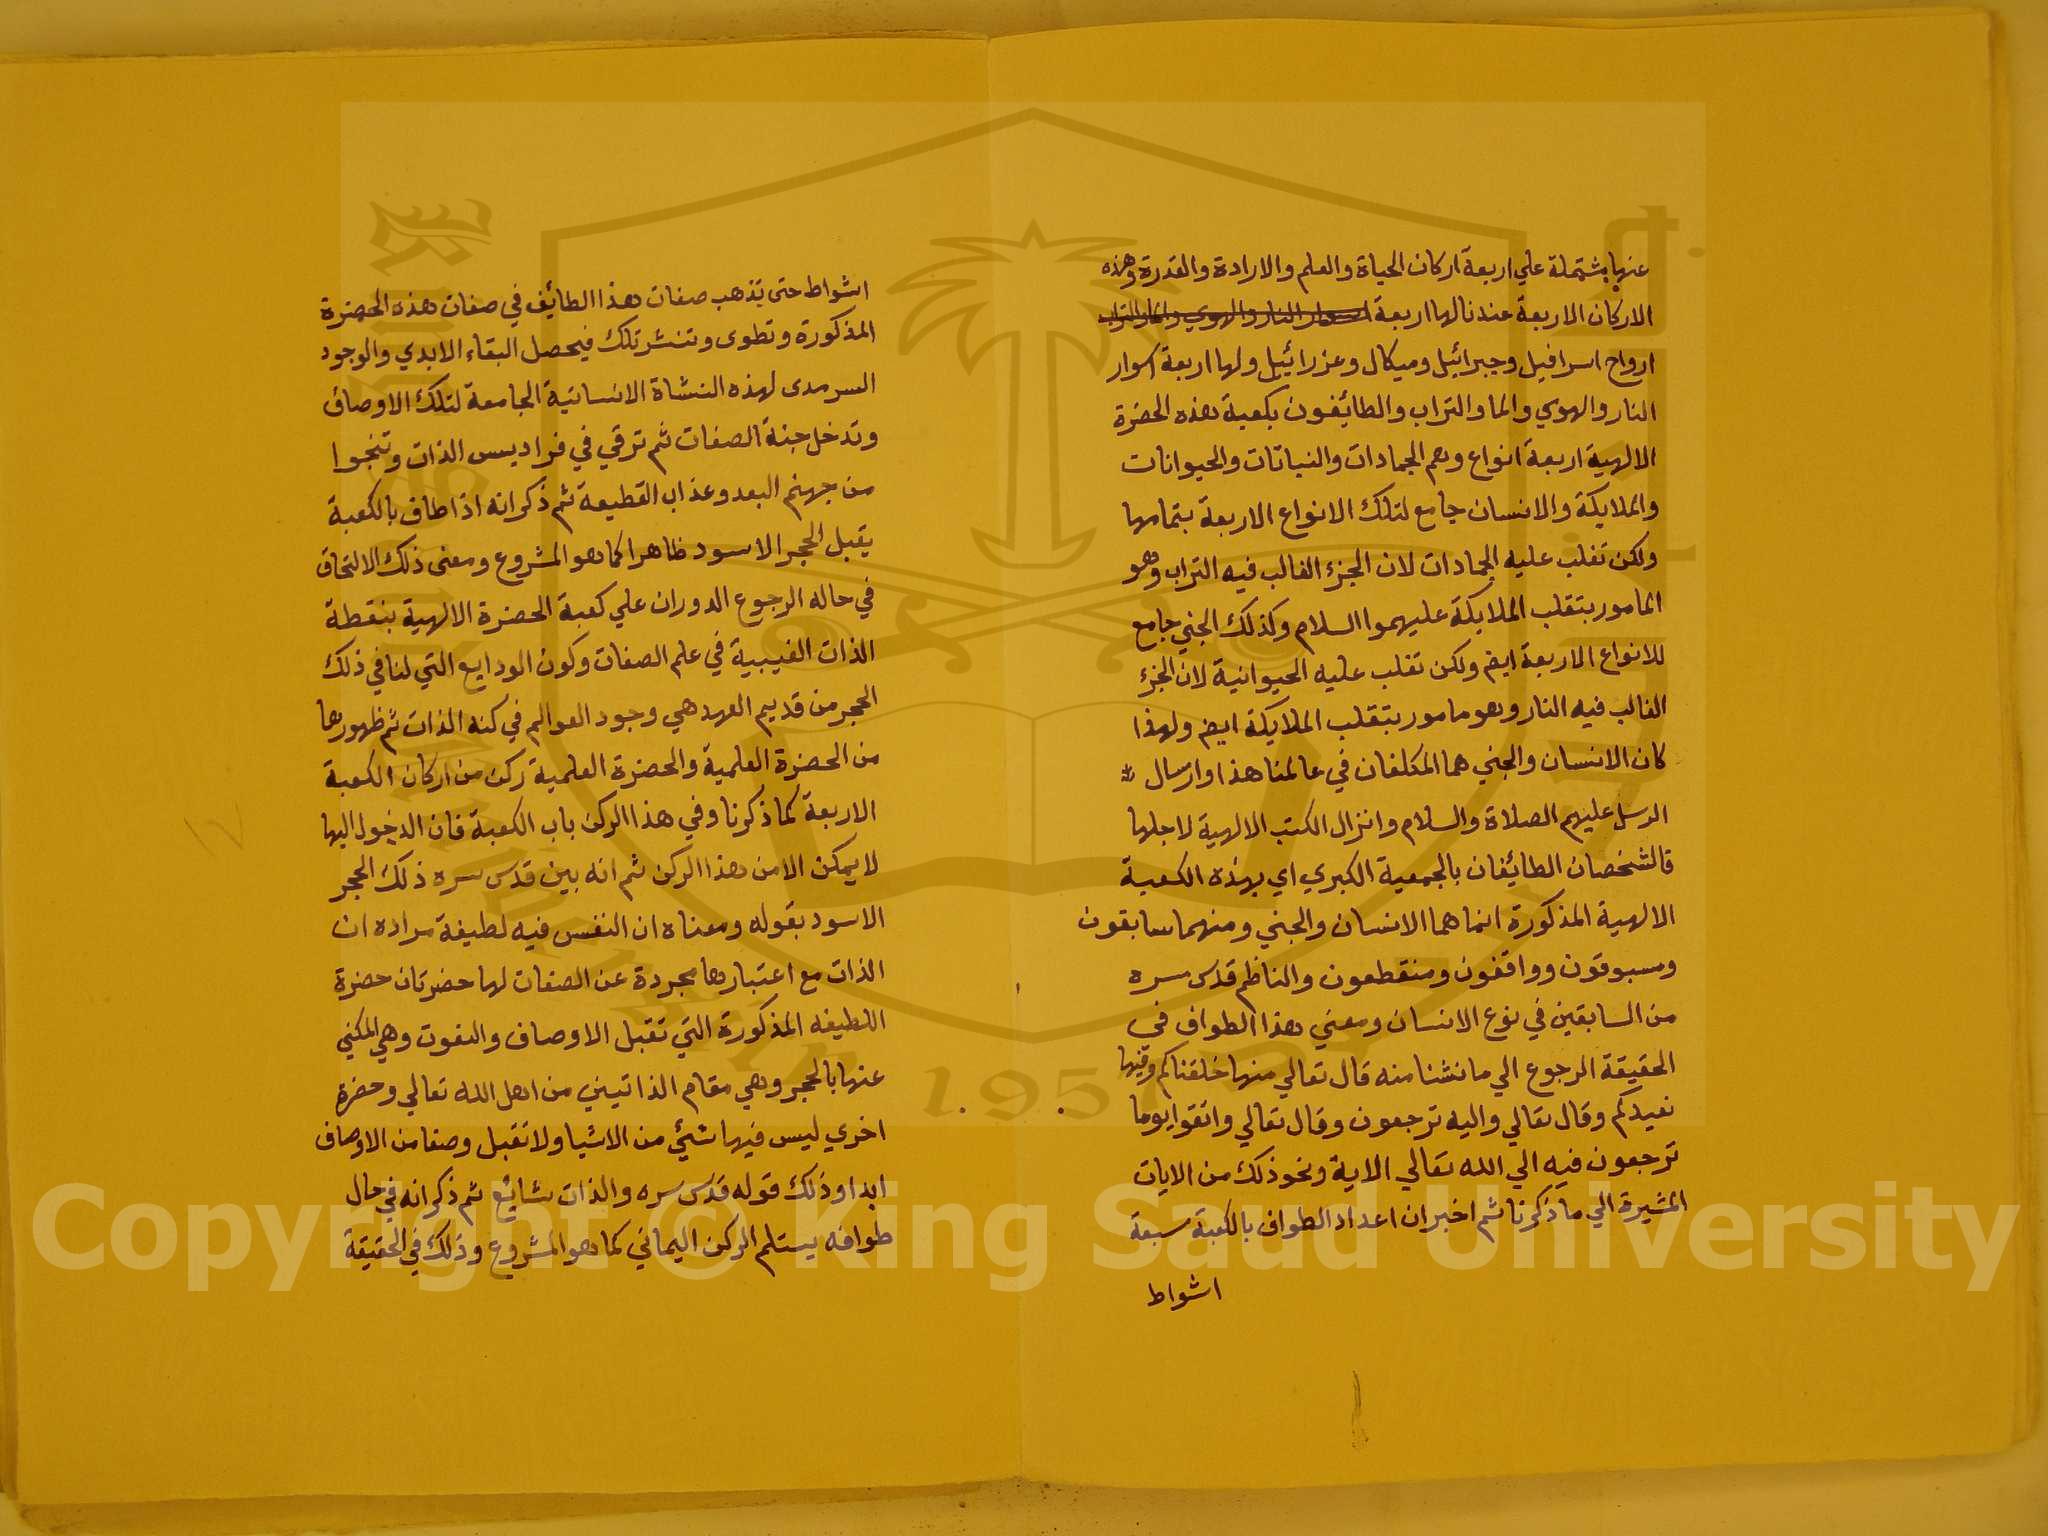 عنها مشتملة علي اربعة اركان الحياة والعلم والارادة والقدرة وهذه
الاركان الاربعة عندنا لها اربعة اسوار النار والهوي والما والتراب
ارواح اسرافيل وجبرائيل وميكال وعزرائيل ولها اربعة اسوار
النار والهوي والما والتراب والطائفون بكعبة هذه الحضرة
الالهية اربعة انواع وهم الجمادات والنباتات والحيوانات
والملايكة والانسان جامع لتلك الانواع الاربعة بتمامها
ولكن تغلب عليه الجمادات لان الجزء الغالب فيه التراب وهو
المامور بتقلب الملايكة عليهموا السلام وكذلك الجني جامع
للانواع الاربعة ايض ولكن تغلب عليه الحيوانية لان الجزء
الغالب فيه النار وهو مامور بتقلب الملايكة ايض ولهذا
كان الانسان والجني هما المكلفان في عالمنا هذا وارسال
الرسل عليهم الصلاة والسلام وانزال الكتب الالهية لاجلها
فالشخصان الطائفان بالجمعية الكبري اي بهذه الكعبة
الالهية المذكورة انما هما الانسان والجني ومنهما سابقون
ومسبوقون وواقفون ومنقطعون والناظم قدس سره
من السابقين في نوع الانسان ومعني هذا الطواف في
الحقيقة الرجوع الي ما نشنا منه قال تعالي منها خلقناكم وفيها
نعيدكم وقال تعالي واليه ترجعون وقال تعالي واتقوا يوما
ترجعون فيه الي الله تعالي الاية ونحو ذلك من الايات
المشيرة الي ما ذكرنا ثم اخبر ان اعداد الطواف بالكعبة سبعة
اشواط
اشواط حتى تذهب صفات هذا الطائف في صفات هذه الحضرة
المذكورة وتطوى وتنشر تلك فيحصل البقاء الابدي والوجود
السرمدى لهذه النشاة الانسانية الجامعة لتلك الاوصاف
وتدخل جنة الصفات ثم ترقي في فراديس الذات وتنجوا
من جهنم البعد وعذاب القطيعة ثم ذكر انه اذا طاف بالكعبة
يقبل الحجر الاسود ظاهرا كما هو المشروع ومعنى ذلك الالتحاق
في حاله الرجوع الدوران علي كعبة الحضرة الالهية بنقطة
الذات الغيبية في علم الصفات وكون الودايع التي لنا في ذلك
الحجر من قديم العهد هي وجود العوالم في كنه الذات ثم ظهورها
من الحضرة العلمية والحضرة العلمية ركن من اركان الكعبة
الاربعة كما ذكرنا وفي هذا الركن باب الكعبة فان الدخول اليها
لا يمكن الا من هذا الركن ثم انه بين قدس سره ذلك الحجر
الاسود بقوله ومعناه ان النفس فيه لطيفة مراده ان
الذات مع اعتبارها مجردة عن الصفات لها حضرتان حضرة
اللطيفه المذكورة التي تقبل الاوصاف والنعوت وهي المكني
عنها بالحجر وهي مقام الذاتيين من اهل الله تعالي وحضرة
اخري ليس فيها شئ من الاشيا ولا تقبل وصفا من الاوصاف
ابدا وذلك قوله قدس سره والذات بشايع ثم ذكر انه في حال
طوافه يستلم الركن اليماني كما هو المشروع وذلك في الحقيقة
1957
Copyright © King Saud University